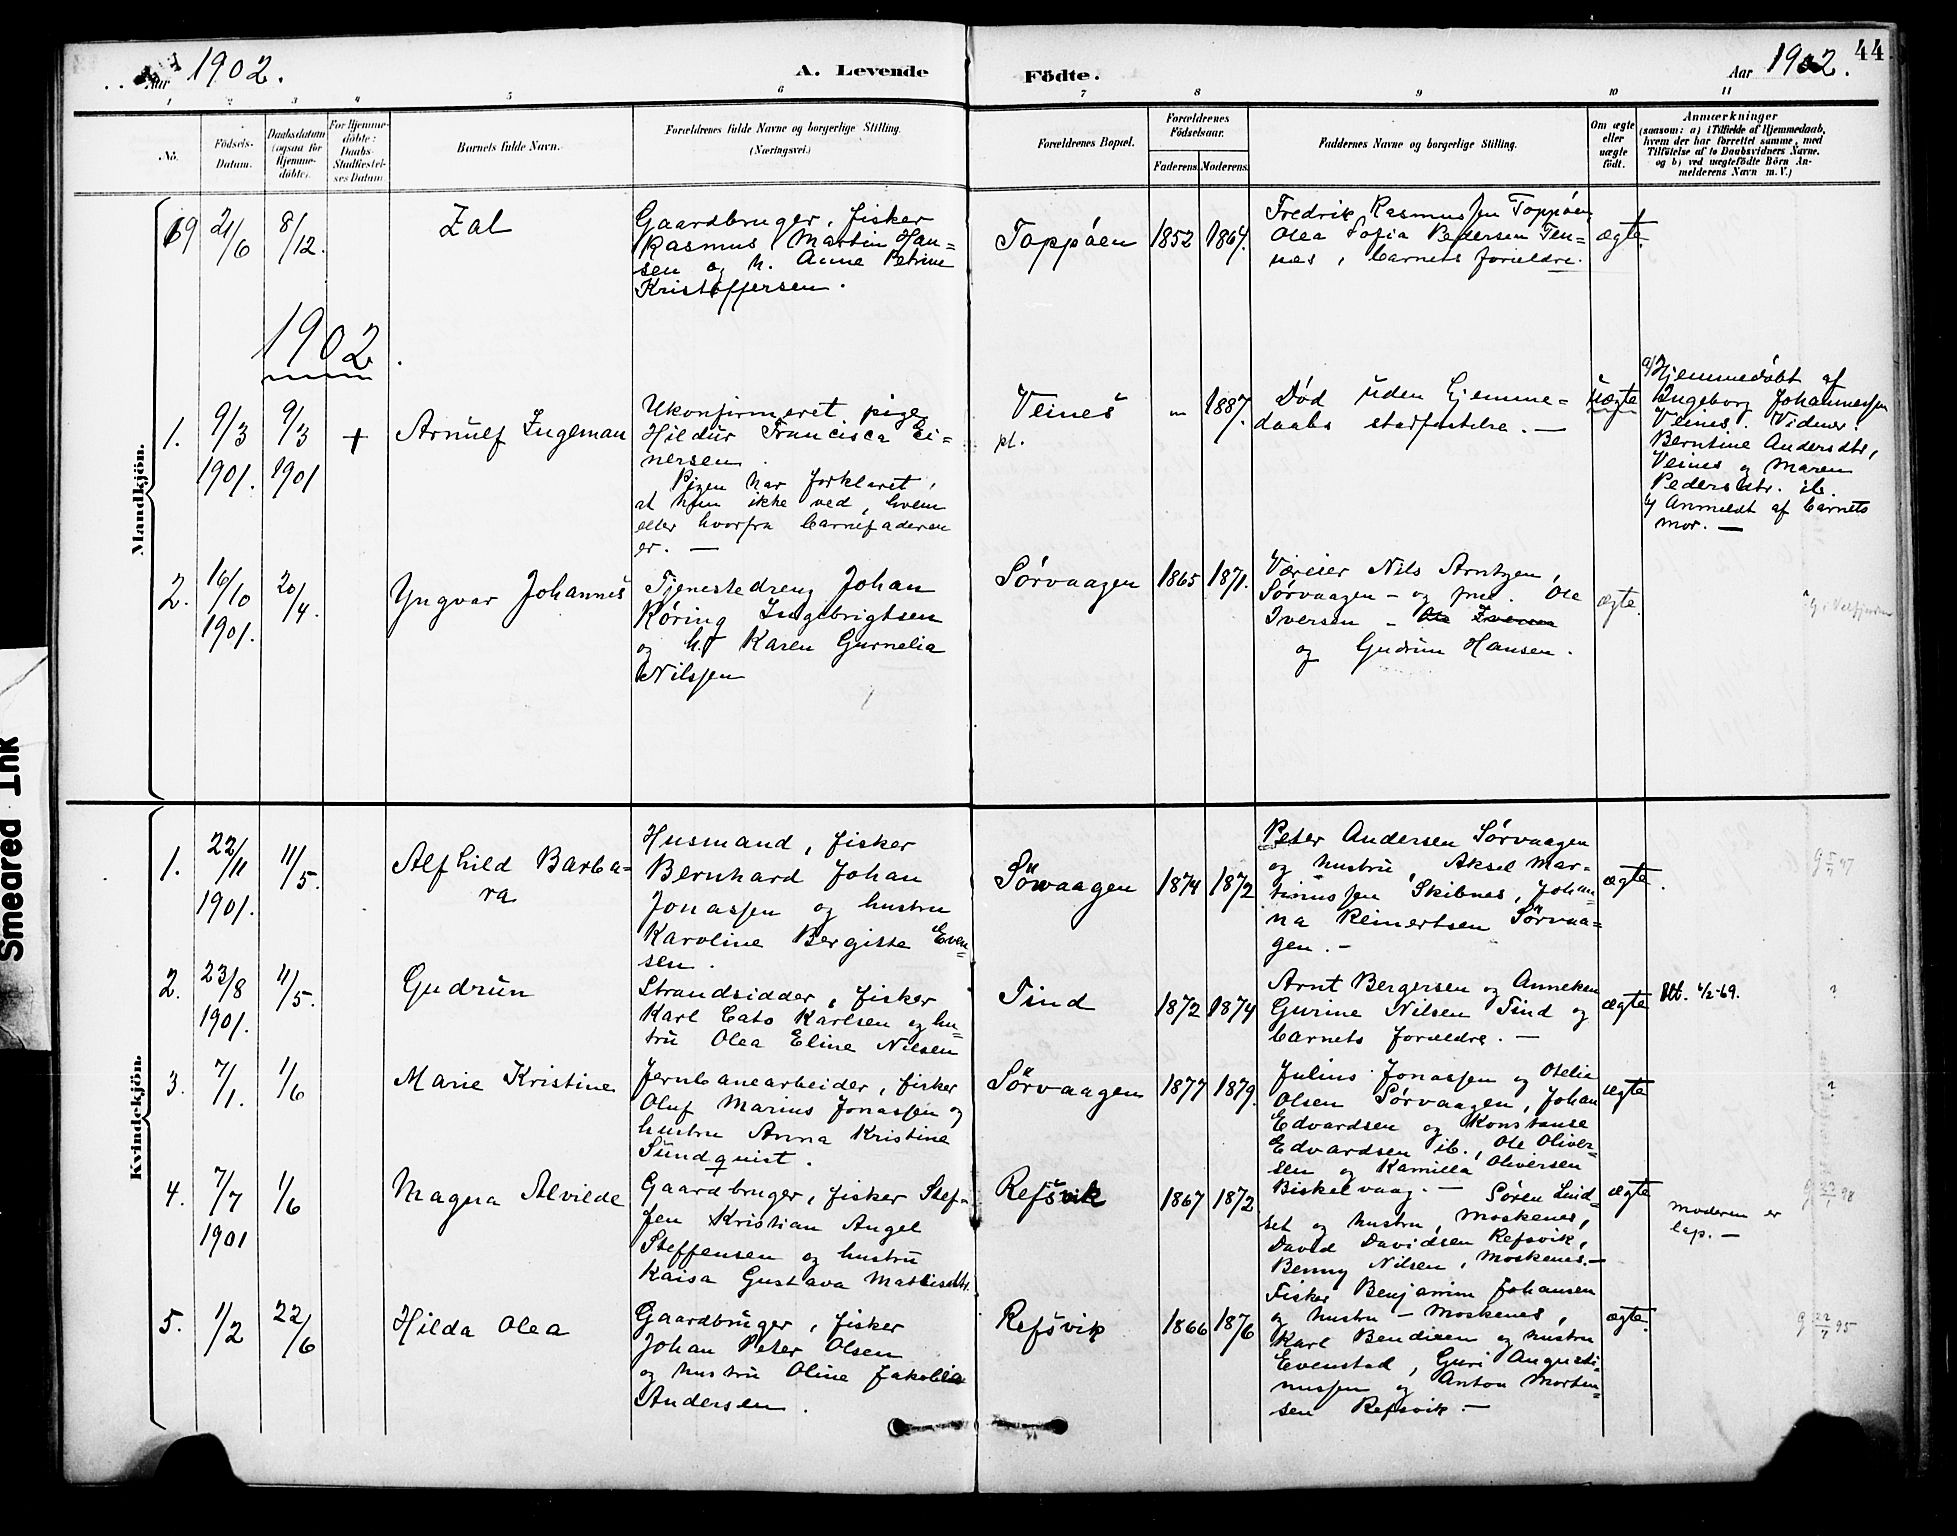 Aar 1902.
A. Levende Födte.
Aar 1902.
44
1 2 3 4 5 6 7 8 9 10 11
No.
Födsels-Datum.
Daabsdatum (ogsaa for Hjemme-döbte).
For Hjemme-döbte: Daabs-Stadfæstel-ses Datum.
Barnets fulde Navn.
Forældrenes fulde Navne og borgerlige Stilling.
(Næringsvei.)
Forældrenes Bopæl.
Forældrenes Födselsaar.
Faderens. Moderens.
Faddernes Navne og borgerlige Stilling.
Om ægte eller uægte født.
Anmærkninger
(saasom: a) i Tilfælde af Hjemmedaab,
hvem der har forrettet samme, med
Tilföielse af to Daabsvidners Navne,
og b) ved uægtefödte Börn An-
melderens Navn m. V.)
Mandkjön.
19 21/6 8/12. Zal
Gaardbruger, fisker
Rasmus Martin Han-
sen og h. Anne Petrine
Kristoffersen.
Toppøen 1852 1864.
Fredrik Rasmussen Toppøen,
Olea Sofia Pedersen Ten-
nes, barnets forældre.
ægte
1902.
1. 9/3 1901. 9/3 1901 + Arnulf Ingeman
Ukonfirmeret pige
Hildur Francisca Ei-
nersen.
Pigen har forklaret,
at hun ikke ved, hvem
eller hvorfra barnefaderen
er. —
Veines pl. — 1887.
Död uden hjemme-
daabs stadfæstelse. —
uægte
a) Hjemmedøbt af
Ingeborg Johannessen
Veines. Vidner:
Berntine Andersdtr,
Veines og Maren
Pedersdtr. ib.
b) Anmeldt af barnets
mor. —
2. 16/10 1901. 20/4. Yngvar Johannes
Tjenestedreng Johan
Røring Ingebrigtsen
og h. Karen Gurnelia
Nilssen
Sörvaagen 1865 1871.
Væreier Nils Arntzen,
Sörvaagen – og frue. Ole
Iversen – Ole Iversen
og Gudrun Hansen.
ægte.
Kvindekjön.
1. 22/11 1901. 11/5. Alfhild Barba-
ra
Husmand, fisker
Bernhard Johan
Jonassen og hustru
Karoline Bergitte Even-
sen.
Sörvaagen 1874 1872
Peter Andersen Sörvaagen
og hustru, Aksel Mar-
tinussen Skibnes, Johan-
na Reinertsen Sörvaa-
gen. –
ægte.
2. 23/8 1901. 11/5. Gudrun
Strandsidder, fisker
Karl Cato Karlsen og hu-
stru Olea Eline Nilsen
Tind 1872 1874
Arnt Bergersen og Anneken
Gurine Nilsen Tind og
barnets forældre. —
ægte
Utt. 4/2-69.
?
3. 7/1. 1/6 Marie Kristine
Jernbanearbeider, fisker
Oluf Marius Jonassen og
hustru Anna Kristine
Sundquist.
Sörvaagen 1877 1879.
Julius Jonassen og Otelie
Olsen Sörvaagen, Johan
Edvardsen og Konstanse
Edvardsen ib., Ole Oliver-
sen og Kamilla Oliversen
Biskelvaag. —
ægte
?
4. 7/7 1901 1/6 Magna Alvilde
Gaardbruger, fisker Stef-
fen Kristian Angel
Steffensen og hustru
Kaisa Gustava Mathisdtr.
Refsvik 1867 1872
Sören Lind-
set og hustru, Moskenes,
David Davidsen Refsvik,
Benny Nilsen, Moskenes. —
ægte
Moderen er
lap. —
5. 1/2 22/6 Hilda Olea
Gaardbruger, fisker
Johan Peter Olsen
og hustru Oline Jakobia
Andersen.
Refsvik 1866 1876
Fisker Benjamin Johansen
og hustru – Moskenes,
Karl Bendixen og hustru
Evenstad, Guri Augusti-
nussen og Anton Morten-
sen Refsvik –
ægte.
g 22/7 95
Smeared Ink